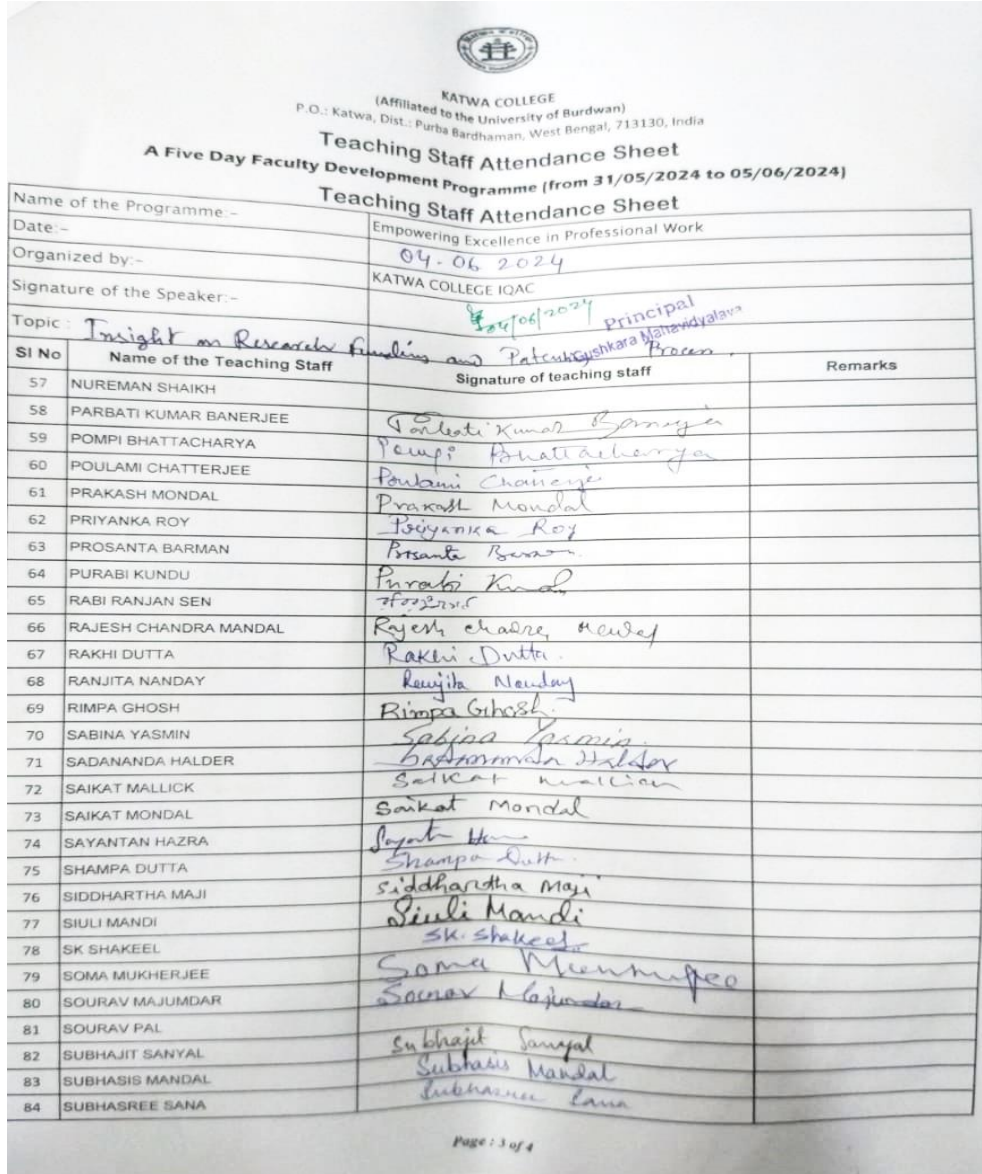 KATWA COLLEGE
(Affiliated to the University of Burdwan)
P.O.: Katwa, Dist.: Purba Bardhaman, West Bengal, 713130, India
Teaching Staff Attendance Sheet
A Five Day Faculty Development Programme (from 31/05/2024 to 05/06/2024)
Teaching Staff Attendance Sheet
Name of the Programme:- Empowering Excellence in Professional Work
Date:- 04-06 2024
Organized by:- KATWA COLLEGE IQAC
Signature of the Speaker:- 04/06/2024 Principal
Gushkara Mahavidyalaya
Topic: Insight on Research Funding and Patenting
Sl No Name of the Teaching Staff Signature of teaching staff Remarks
57 NUREMAN SHAIKH
58 PARBATI KUMAR BANERJEE Parbati Kumar Banerjee
59 POMPI BHATTACHARYA Pompi Bhattacharya
60 POULAMI CHATTERJEE Poulami Chatterjee
61 PRAKASH MONDAL Prakash Mondal
62 PRIYANKA ROY Priyanka Roy
63 PROSANTA BARMAN Prosanta Barman
64 PURABI KUNDU Purabi
65 RABI RANJAN SEN
66 RAJESH CHANDRA MANDAL Rajesh
67 RAKHI DUTTA Rakhi Dutta
68 RANJITA NANDAY Ranjita Nanday
69 RIMPA GHOSH Rimpa Ghosh
70 SABINA YASMIN Sabina Yasmin
71 SADANANDA HALDER
72 SAIKAT MALLICK Saikat
73 SAIKAT MONDAL Saikat Mondal
74 SAYANTAN HAZRA
75 SHAMPA DUTTA Shampa
76 SIDDHARTHA MAJI Siddhartha Maji
77 SIULI MANDI Siuli Mandi
78 SK SHAKEEL SK. Shakeel
79 SOMA MUKHERJEE Soma
80 SOURAV MAJUMDAR Sourav Majumdar
81 SOURAV PAL
82 SUBHAJIT SANYAL Subhajit Sanyal
83 SUBHASIS MANDAL Subhasis Mandal
84 SUBHASREE SANA Subhasree Sana
Page : 3 of 4